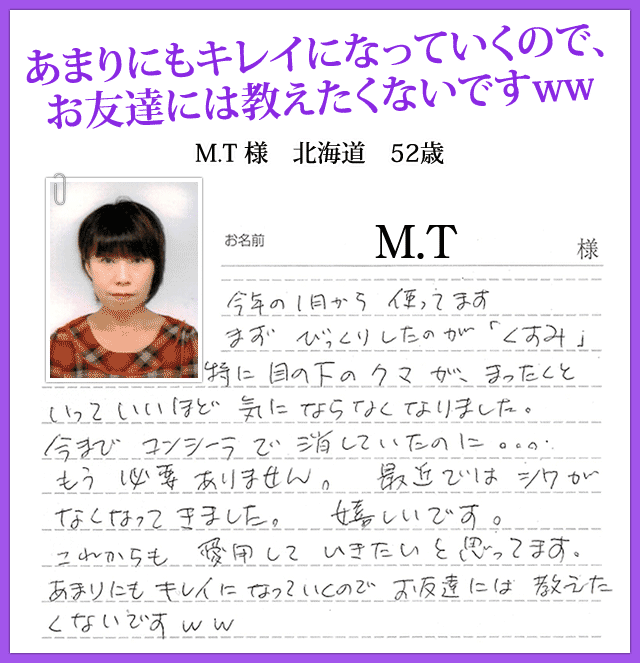 あまりにもキレイになっていくので、
お友達には教えたくないですww
M.T 様　北海道　52歳
お名前　M.T　様
今年の1月から 使ってます
まず びっくりしたのが「くすみ」
特に 目の下の クマ が、まったくと
いって いいほど 気に ならなく なりました。
今まで コンシーラ で 消していたのに 。。。
もう 必要 ありません。 最近では シワが
なくなって きました。 嬉しいです。
これからも 愛用して いきたい と 思ってます。
あまりにも キレイに なっていくので お友達には 教えた
くないです w w